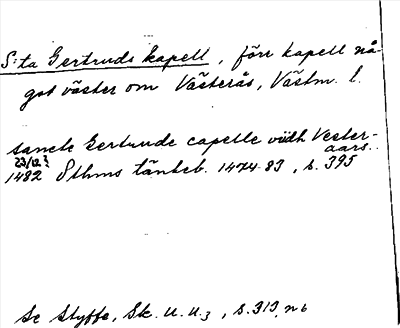 S:ta Gertruds kapell, förr kapell nå-
got väster om Västerås, Västm. l.
sancte Gertrude capelle widh Vester-
aars.
23/12? 1482 Sthms tänkeb. 1474-83, s. 395
Se Styffe, Sk. U. U. 3, s. 313, n 6